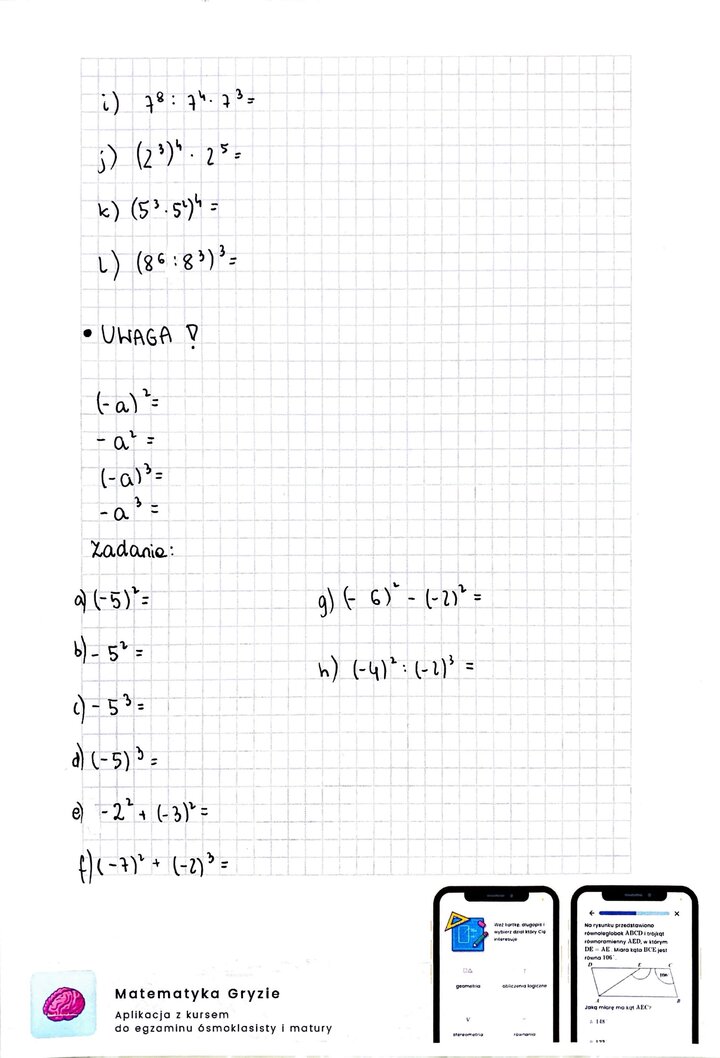 i) 7⁸ : 7⁴ · 7³ =
j) (2³)⁴ · 2⁵ =
k) (5³ · 5²)⁴ =
l) (8⁶ : 8³)³ =
• UWAGA !
(-a)² =
- a² =
(-a)³ =
- a³ =
Zadanie:
a) (-5)² =
b) - 5² =
c) - 5³ =
d) (-5)³ =
e) -2² + (-3)² =
f) (-7)² + (-2)³ =
g) (- 6)² - (-2)² =
h) (-4)² : (-2)³ =
Matematyka Gryzie
Aplikacja z kursem
do egzaminu ósmoklasisty i matury
Weź kartkę, długopis i
wybierz dział który Cię
interesuje
geometria
obliczenia logiczne
stereometria
równania
Na rysunku przedstawiono
równoległobok ABCD i trójkąt
równoramienny AED, w którym
DE = AE. Miara kąta BCE jest
równa 106°.
D E C
106°
A B
Jaką miarę ma kąt AEC?
148